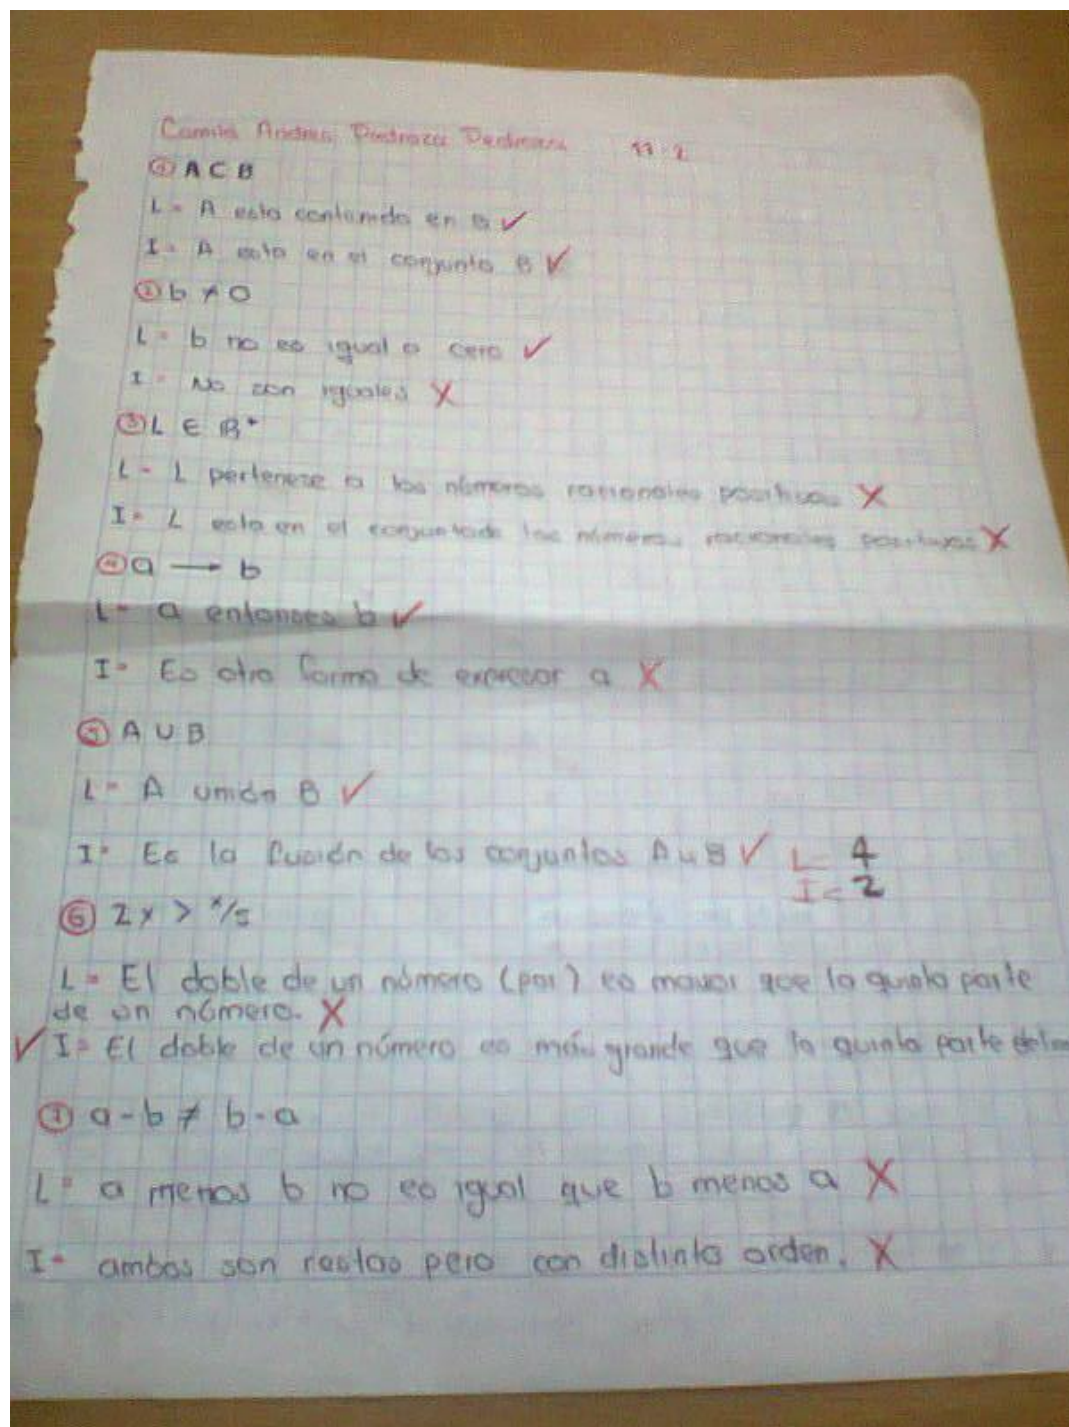 Camila Andrea Pedraza 11-2
① A ⊂ B
L = A esta contenido en B ✓
I = A esta en el conjunto B ✓
② b ≠ 0
L = b no es igual a cero ✓
I = No son iguales X
③ L ∈ R⁺
L = L pertenece a los números racionales positivos X
I = L esta en el conjunto de los números racionales positivos X
④ a → b
L = a entonces b ✓
I = Es otra forma de expresar a X
⑤ A U B
L = A unión B ✓
I = Es la fusión de los conjuntos A u B ✓ L = 4
I = 2
⑥ 2x > x/5
L = El doble de un número (par) es mayor que la quinta parte
de un número. X
✓ I = El doble de un número es más grande que la quinta parte
⑦ a - b ≠ b - a
L = a menos b no es igual que b menos a X
I = ambas son restas pero con distinto orden. X